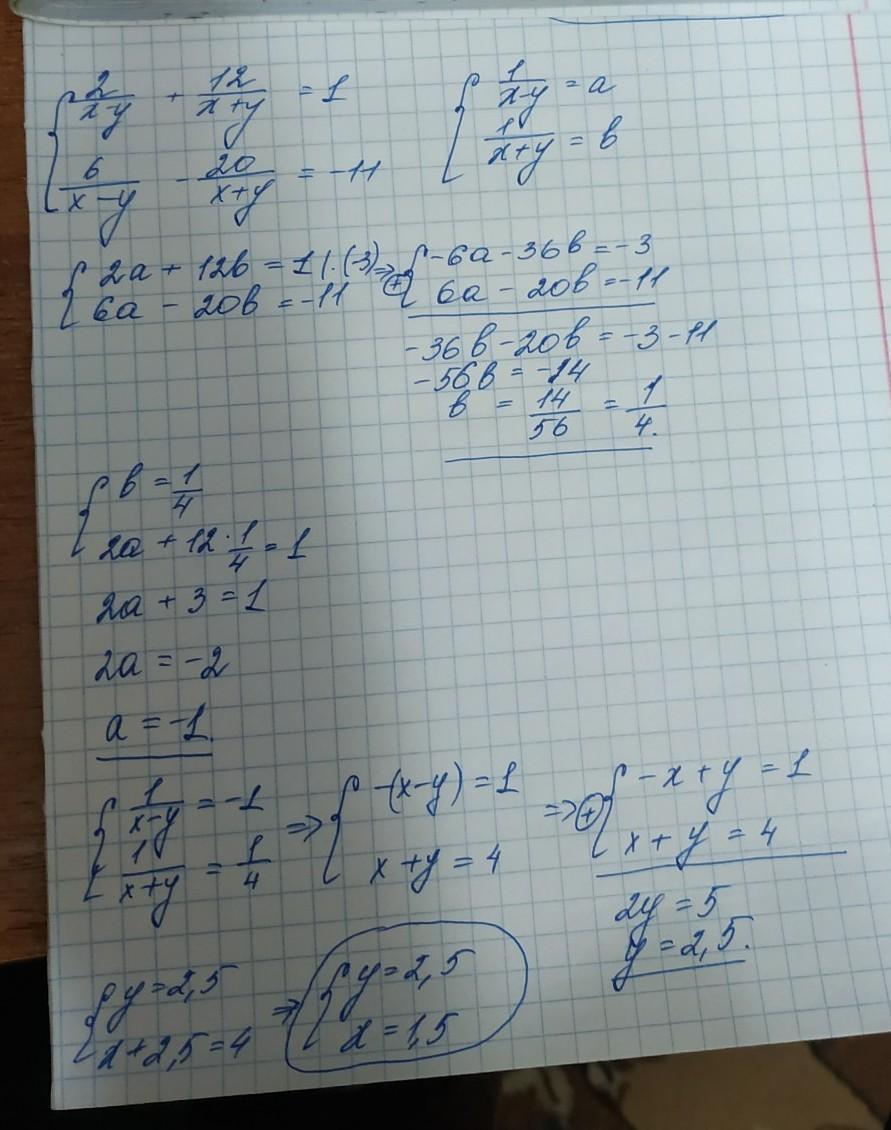 { 2/(x-y) + 12/(x+y) = 1
6/(x-y) - 20/(x+y) = -11
{ 1/(x-y) = a
1/(x+y) = b
{ 2a + 12b = 1 | ·(-3) ⇒
6a - 20b = -11
⊕ { -6a - 36b = -3
6a - 20b = -11
-36b - 20b = -3 - 11
-56b = -14
b = 14/56 = 1/4.
{ b = 1/4
2a + 12 · 1/4 = 1
2a + 3 = 1
2a = -2
a = -1.
{ 1/(x-y) = -1
1/(x+y) = 1/4
⇒ { -(x-y) = 1
x+y = 4
⇒ ⊕ { -x + y = 1
x + y = 4
2y = 5
y = 2,5.
{ y = 2,5
x + 2,5 = 4
⇒ { y = 2,5
x = 1,5